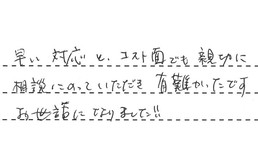 早い対応と、コスト面でも親切に
相談にのっていただき有難かったです
お世話になりました!!